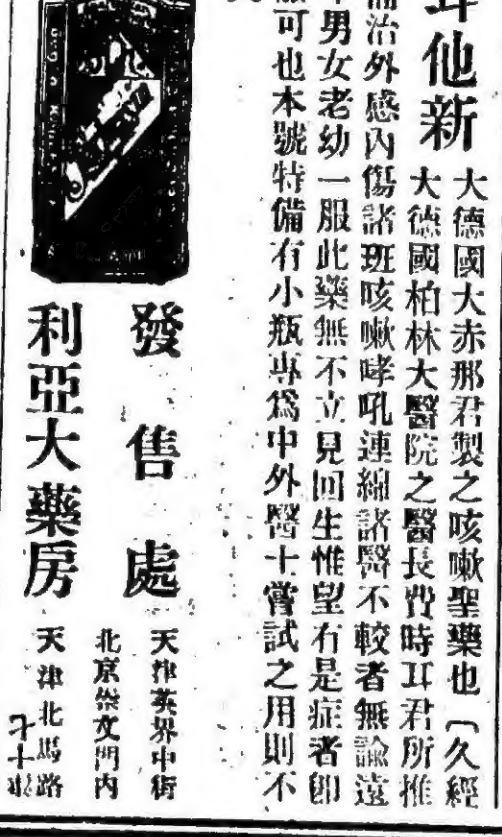 耳他新
大德國大赤那君製之咳嗽聖藥也〔久經
大德國柏林大醫院之醫長費時耳君所推
治外感內傷諸班咳嗽哮吼連綿諸醫不較者無論遠
男女老幼一服此藥無不立見回生惟望有是症者卽
可也本號特備有小瓶專爲中外醫士嘗試之用則不
發售處
天津英界中街
北京崇文門內
利亞大藥房
天津北馬路